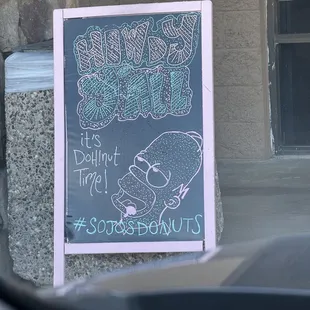 HOWDY
YALL
it's
DoH!nut
Time!
#SOJOSDONUTS